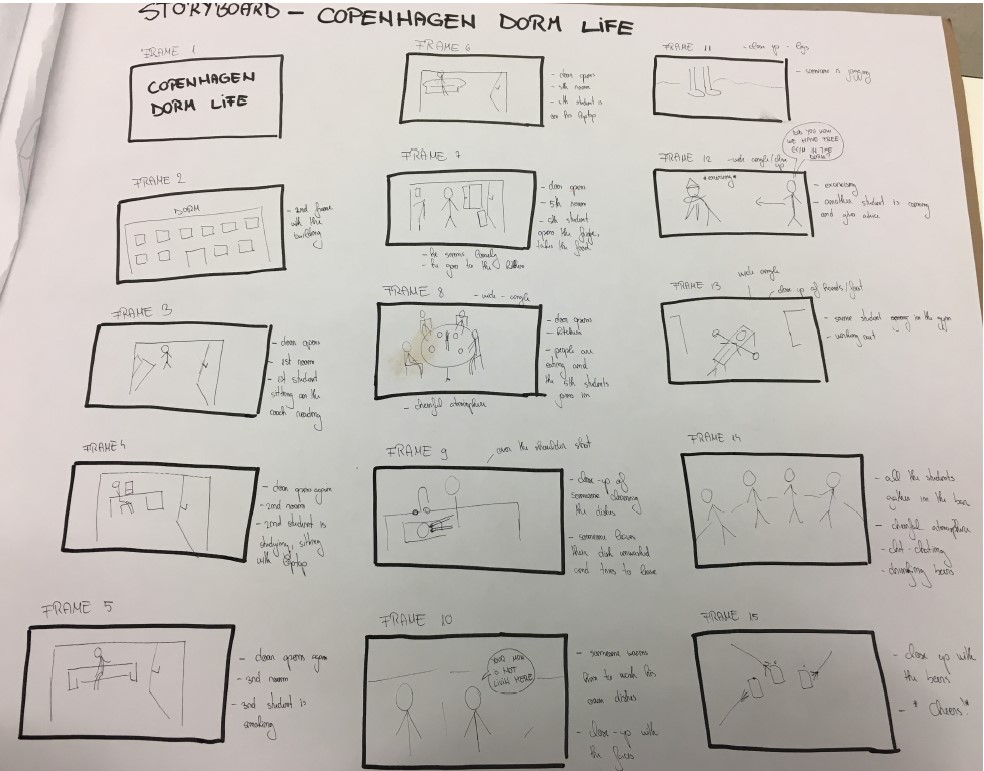 STORYBOARD - COPENHAGEN DORM LIFE
FRAME 1
COPENHAGEN
DORM LIFE
FRAME 2
DORM
- 2nd frame
with the
building
FRAME 3
- door opens
- 1st room
- 1st student
sitting on the
coach reading
FRAME 4
- door opens again
- 2nd room
- 2nd student is
studying, sitting
with laptop
FRAME 5
- door opens again
- 3rd room
- 3rd student is
smoking
FRAME 6
- door opens
- 4th room
- 4th student is
on his laptop
FRAME 7
- door opens
- 5th room
- 5th student
opens the fridge,
takes the food
- he seems lonely
- he goes to the kitchen
FRAME 8
- wide-angle
- door opens
- kitchen
- people are
eating and
the 5th students
joins in
- cheerful atmosphere
FRAME 9
over the shoulder shot
- close-up of
someone cleaning
the dishes
- someone leaves
their dish unwashed
and tries to leave
FRAME 10
MOM
NOT
LIVIN HERE
- someone warns
him to wash his
own dishes
- close-up with
the faces
FRAME 11
- close up - legs
- someone is jogging
FRAME 12
- wide angle/close
up
DO YOU KNOW
WE HAVE FREE
GYM IN THE
DORM?
*exercising*
- exercising
- another student is coming
and give advice
FRAME 13
wide angle
close up of hands/feet
- some student in the gym
- working out
FRAME 14
- all the students
gather in the bar
- cheerful atmosphere
- chit-chating
- drinking beers
FRAME 15
- close up with
the beers
- * Cheers!*